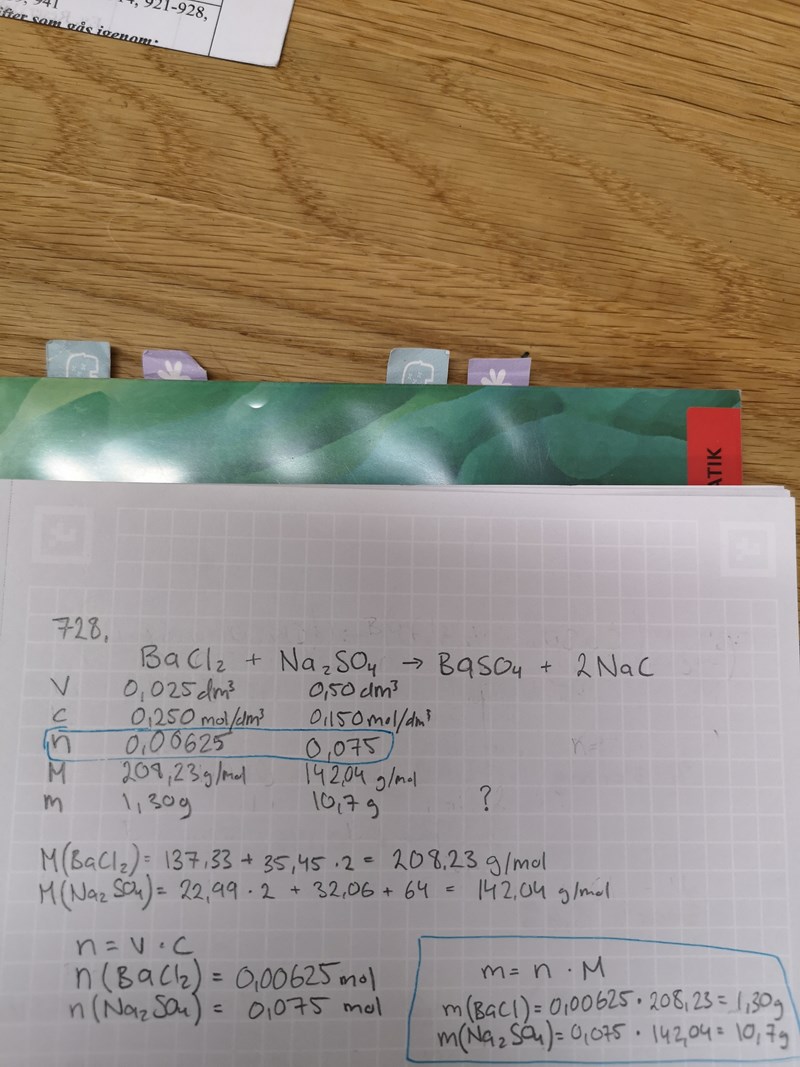 941
4, 921-928,
som gås igenom:
ATIK
728,
BaCl₂ + Na₂SO₄ → BaSO₄ + 2NaC
V 0,025 dm³ 0,50 dm³
C 0,250 mol/dm³ 0,150 mol/dm³
n 0,00625 0,075
M 208,23 g/mol 142,04 g/mol
m 1,30g 10,7 g ?
M(BaCl₂) = 137,33 + 35,45 · 2 = 208,23 g/mol
M(Na₂SO₄) = 22,99 · 2 + 32,06 + 64 = 142,04 g/mol
n = V · C
n(BaCl₂) = 0,00625 mol
n(Na₂SO₄) = 0,075 mol
m = n · M
m(BaCl) = 0,00625 · 208,23 = 1,30g
m(Na₂SO₄) = 0,075 · 142,04 = 10,7g